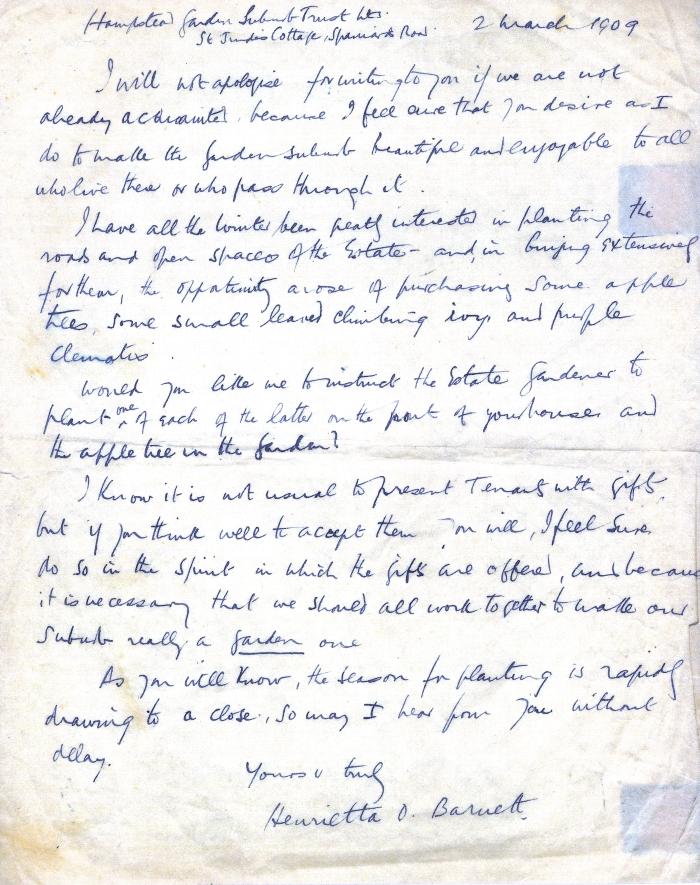 Hampstead Garden Suburb Trust Ltd.
St Jude's Cottage, Spaniards Road. 2 March 1909
I will not apologise for writing to you if we are not
already acquainted, because I feel sure that you desire as I
do to make the Garden Suburb beautiful and enjoyable to all
who live there or who pass through it.
I have all the Winter been greatly interested in planting the
roads and open spaces of the Estate - and, in buying extensively
for them, the opportunity arose of purchasing some apple
trees, some small leaved climbing ivys and purple
Clematis.
Would you like me to instruct the Estate Gardener to
plant one of each of the latter on the front of your houses and
the apple tree in the garden?
I know it is not usual to present Tenants with gifts,
but if you think well to accept them you will, I feel sure,
do so in the spirit in which the gifts are offered, and because
it is necessary that we should all work together to make our
Suburb really a garden one
As you will know, the season for planting is rapidly
drawing to a close, so may I hear from you without
delay.
Yours v truly
Henrietta O. Barnett.